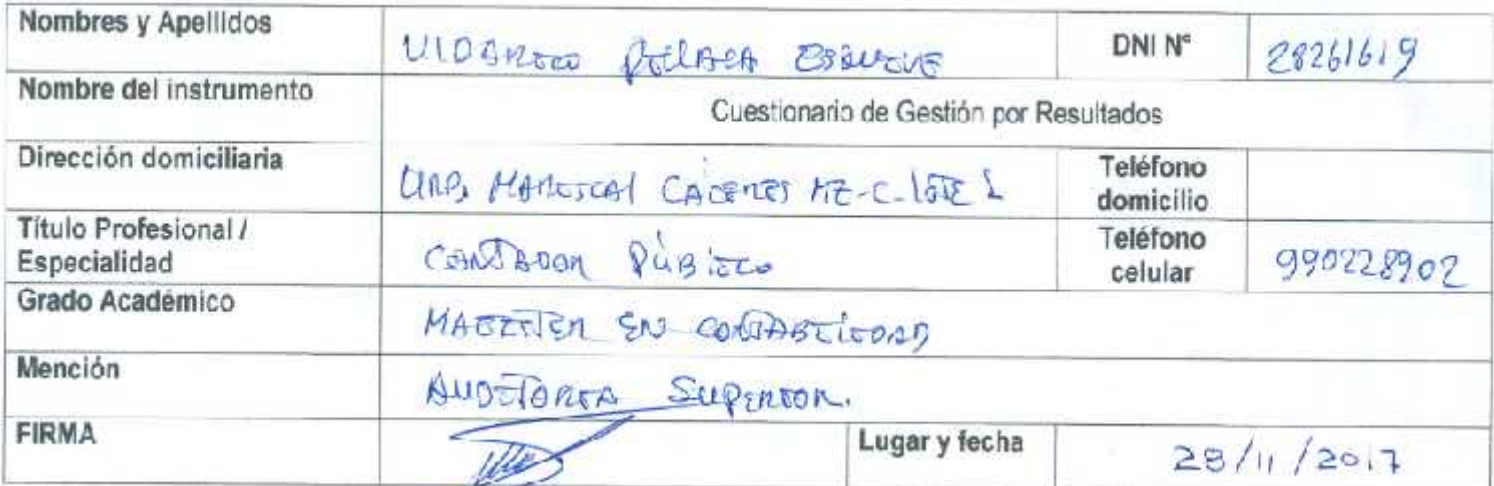 Nombres y Apellidos
DNI N° 28261619
Nombre del instrumento Cuestionario de Gestión por Resultados
Dirección domiciliaria URB. MARISCAL CÁCERES MZ-C-LOTE 1
Teléfono domicilio
Título Profesional / Especialidad CONTADOR PÚBLICO
Teléfono celular 990228902
Grado Académico MAGISTER EN CONTABILIDAD
Mención AUDITORIA SUPERIOR.
FIRMA
Lugar y fecha 28/11/2017